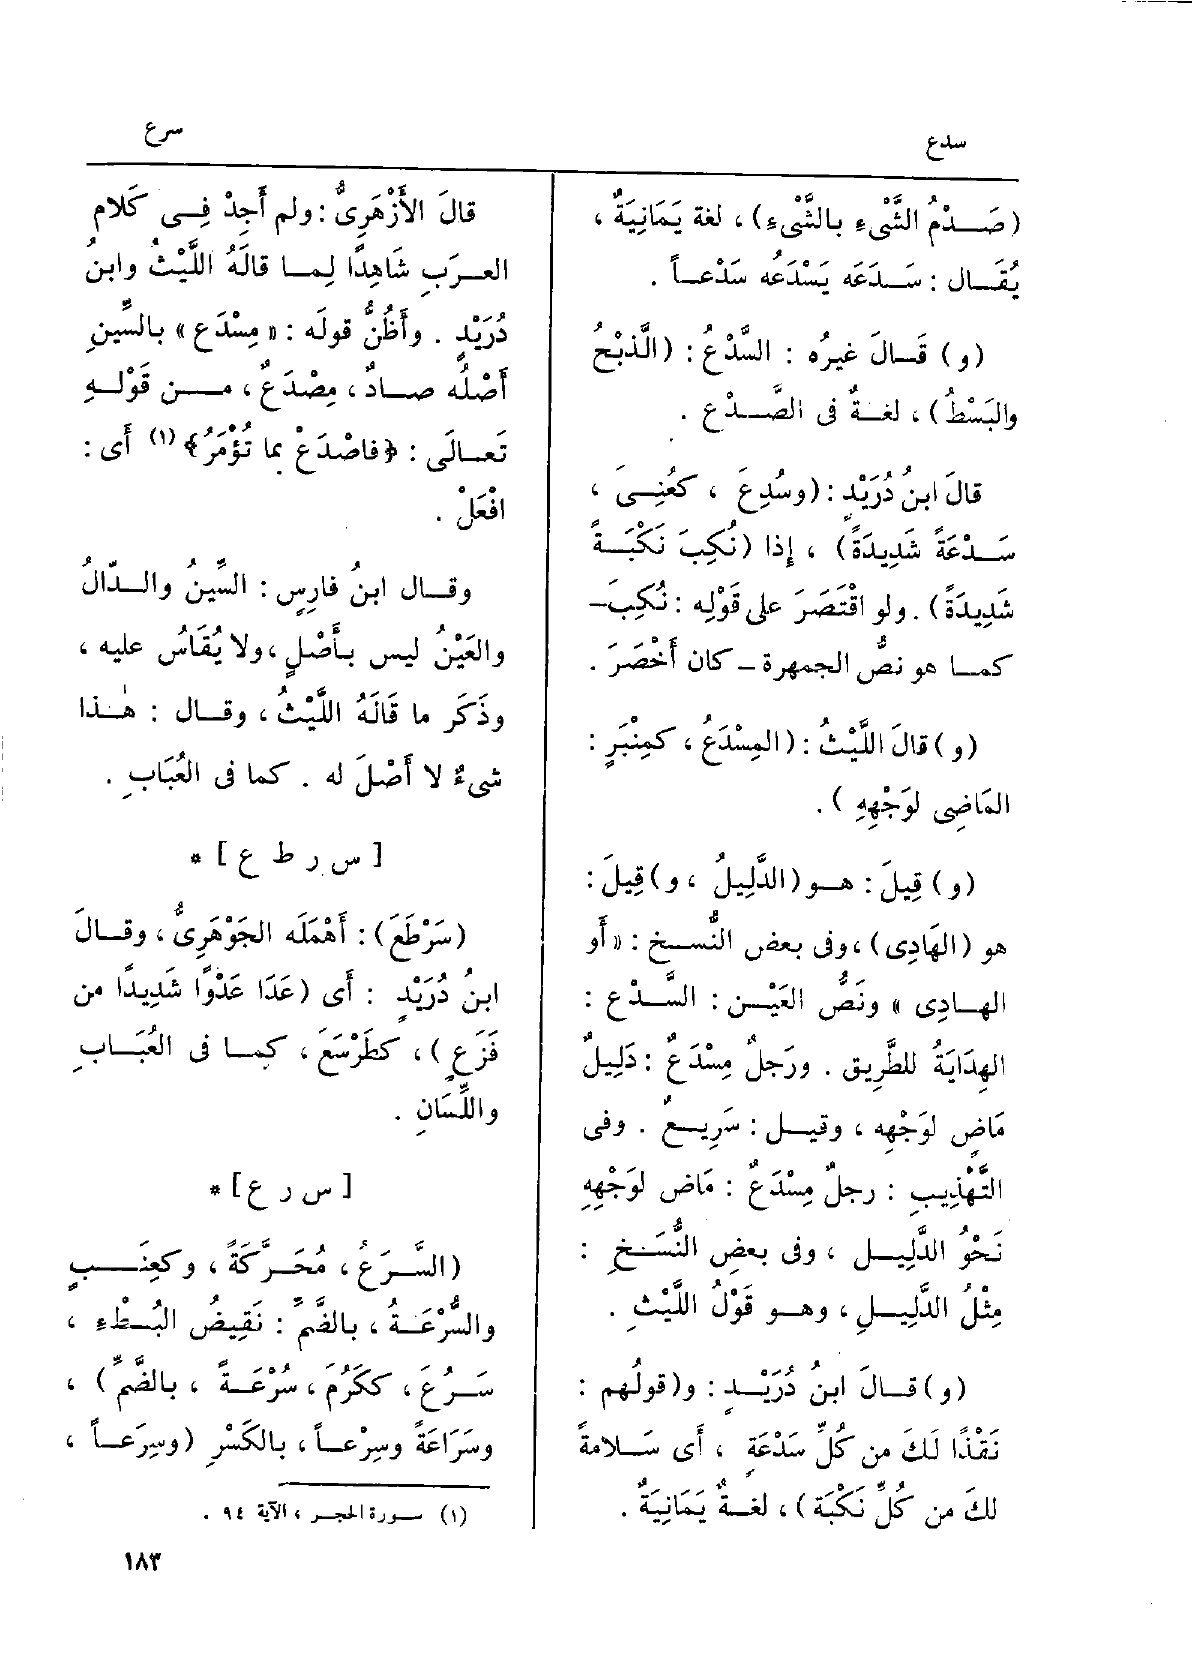 سدع
سرع
(صَـدْمُ الشَّىْءِ بالشَّىْءِ) ، لغة يَمَانِيَةٌ ،
يُقَـال : سَـدَعَه يَسْدَعُه سَدْعـاً .
(و) قَـالَ غيرُه : السَّدْعُ : (الذَّبْحُ
والبَسْطُ) ، لغـةٌ فى الصَّـدْعِ .
قالَ ابنُ دُرَيْدٍ : (وسُدِعَ ، كعُنِـىَ ،
سَـدْعَةً شَدِيدَةً) ، إذا (نُكِبَ نَكْبَـةً
شَدِيدَةً) . ولو اقْتَصَرَ على قَوْلِه : نُكِبَ-
كمـا هو نصُّ الجمهرة - كان أَخْصَرَ .
(و) قالَ اللَّيْثُ : (المِسْدَعُ ، كمِنْبَرٍ :
المَاضِى لوَجْهِهِ ) .
(و) قِيلَ : هـو (الدَّلِيلُ ، و) قِيلَ :
هو (الهَادِى) ، وفى بعض النُّسـخ : « أَو
الهـادِى » ونَصُّ العَيْـن : السَّـدْع :
الهِدَايَةُ للطَّرِيق . ورَجلٌ مِسْدَعٌ : دَلِيلٌ
مَاضٍ لوَجْهِه ، وقيـل : سَرِيـعٌ . وفى
التَّهْذِيبِ : رجلٌ مِسْدَعٌ : مَاض لوَجْهِهِ
نَحْوُ الدَّلِيـل ، وفى بعضِ النُّسَـخِ :
مِثْلُ الدَّلِيـلِ ، وهـو قَوْلُ اللَّيْثِ .
(و) قـالَ ابنُ دُرَيْـدٍ : و(قولُهم :
نَقْذًا لَكَ من كُلِّ سَدْعَةٍ ، أَى سَـلامةً
لكَ من كُلِّ نَكْبَة) ، لغـةٌ يَمَانِيَةٌ .
قالَ الأَزْهَرِىُّ : ولم أَجِدْ فِـى كَلام
العـرَبِ شَاهِدًا لِمـا قالَهُ اللَّيْثُ وابنُ
دُرَيْدٍ . وأَظُنُّ قولَه : « مِسْدَع » بالسِّينِ
أَصْلُه صـادٌ ، مِصْدَعٌ ، مـن قَوْلِـهِ
تَعـالَى : ﴿فاصْدَعْ بما تُؤْمَرُ﴾ (١) أَى :
افْعَلْ .
وقـال ابنُ فارِسٍ : السِّينُ والـدّالُ
والعَيْنُ ليس بـأَصْلٍ ، ولا يُقَاسُ عليه ،
وذَكَر ما قَالَهُ اللَّيْثُ ، وقـال : هـٰذا
شىءٌ لا أَصْلَ له . كما فى العُبَابِ .
[ س ر ط ع ] *
(سَرْطَعَ) : أَهْمَلَه الجَوْهَرِىُّ ، وقـالَ
ابنُ دُرَيْدٍ : أَى (عَدَا عَدْوًا شَدِيدًا من
فَزَعٍ ) ، كطَرْسَعَ ، كمـا فى العُبَـابِ
واللِّسَانِ .
[ س ر ع ] *
(السَّـرَعُ ، مُحَـرَّكَةً ، وكعِنَـبٍ
والسُّرْعَـةُ ، بالضَّمِّ : نَقِيضُ البُـطْءِ ،
سَـرُعَ ، ككَرُمَ ، سُرْعَـةً ، بالضَّمِّ) ،
وسَرَاعَةً وسِرْعـاً ، بالكَسْرِ (وسِرَعـاً ،
(١) سـورة الحجـر ، الآية ٩٤ .
١٨٣